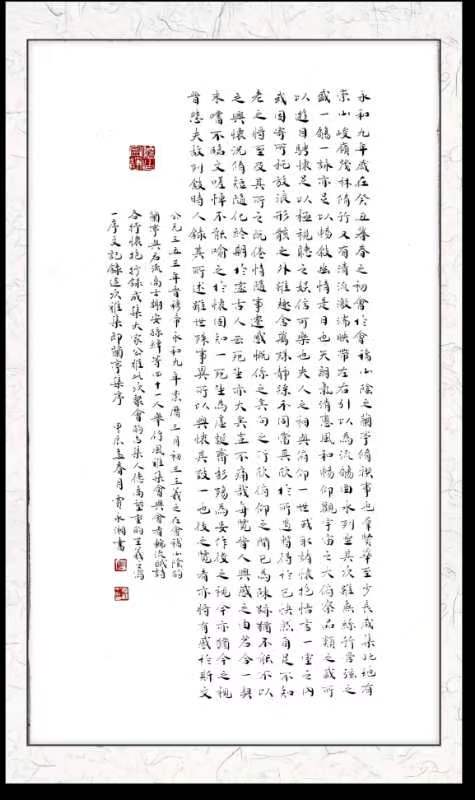 永和九年歲在癸丑暮春之初會於會稽山陰之蘭亭脩稧事也羣賢畢至少長咸集此地有
崇山峻嶺茂林脩竹又有清流激湍映帶左右引以為流觴曲水列坐其次雖無絲竹管弦之
盛一觴一詠亦足以暢敘幽情是日也天朗氣清惠風和暢仰觀宇宙之大俯察品類之盛所
以遊目騁懷足以極視聽之娛信可樂也夫人之相與俯仰一世或取諸懷抱悟言一室之內
或因寄所託放浪形骸之外雖趣舍萬殊靜躁不同當其欣於所遇暫得於己快然自足不知
老之將至及其所之既倦情隨事遷感慨係之矣向之所欣俛仰之間已為陳跡猶不能不以
之興懷況脩短隨化終期於盡古人云死生亦大矣豈不痛哉每覽昔人興感之由若合一契
未嘗不臨文嗟悼不能喻之於懷固知一死生為虛誕齊彭殤為妄作後之視今亦猶今之視
昔悲夫故列敘時人錄其所述雖世殊事異所以興懷其致一也後之覽者亦將有感於斯文
公元三五三年晉穆帝永和九年農曆三月初三王羲之在會稽山陰的
蘭亭與名流高士謝安孫綽等四十一人舉行風雅集會與會者臨流賦詩
各抒懷抱抄錄成集大家公推此次聚會的召集人德高望重的王羲之寫
一序文記錄這次雅集即蘭亭集序 甲辰孟春月賈永湘書